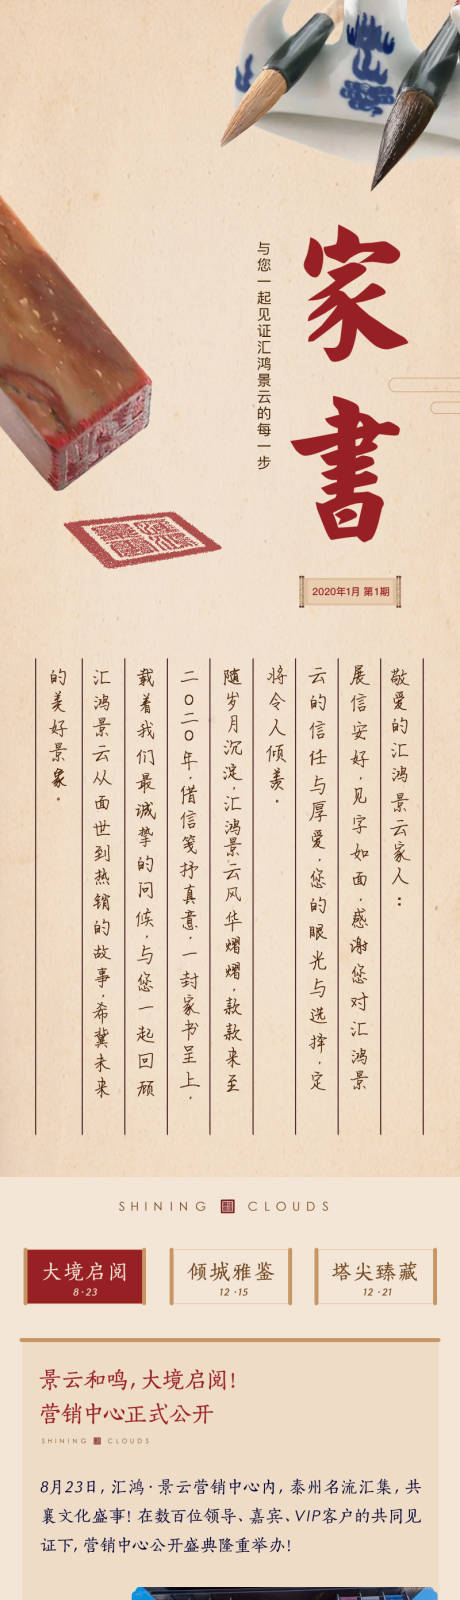 家書
与您一起见证汇鸿景云的每一步
2020年1月 第1期
敬爱的汇鸿景云家人：
展信安好，见字如面，感谢您对汇鸿景
云的信任与厚爱，您的眼光与选择，定
将令人倾羡。
随岁月沉淀，汇鸿景云风华熠熠，款款来至
二〇二〇年，借信笺抒真意，一封家书呈上，
载着我们最诚挚的问候，与您一起回顾
汇鸿景云从面世到热销的故事，希冀未来
的美好景象。
SHINING CLOUDS
大境启阅
8·23
倾城雅鉴
12·15
塔尖臻藏
12·21
景云和鸣，大境启阅！
营销中心正式公开
SHINING CLOUDS
8月23日，汇鸿·景云营销中心内，泰州名流汇集，共
襄文化盛事！在数百位领导、嘉宾、VIP客户的共同见
证下，营销中心公开盛典隆重举办！